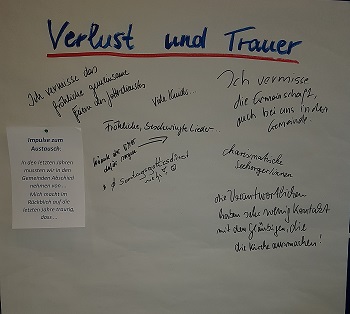 Verlust und Trauer
Ich vermisse das
fröhliche gemeinsame
Feiern des Gottesdienstes
Viele Kinder...
Ich vermisse
die Gemeinschaft,
auch bei uns in der
Gemeinde.
Fröhliche, Lieder
Impulse zum
Austausch
In den letzten Jahren
mussten wir in den
Gemeinden Abschied
nehmen von ...
Mich macht im
Rückblick auf die
letzten Jahre traurig,
dass....
charismatische
Seelsorger/innen
die Verantwortlichen
haben sehr wenig Kontakt
mit den Gläubigen, die
die Kirche ausmachen!